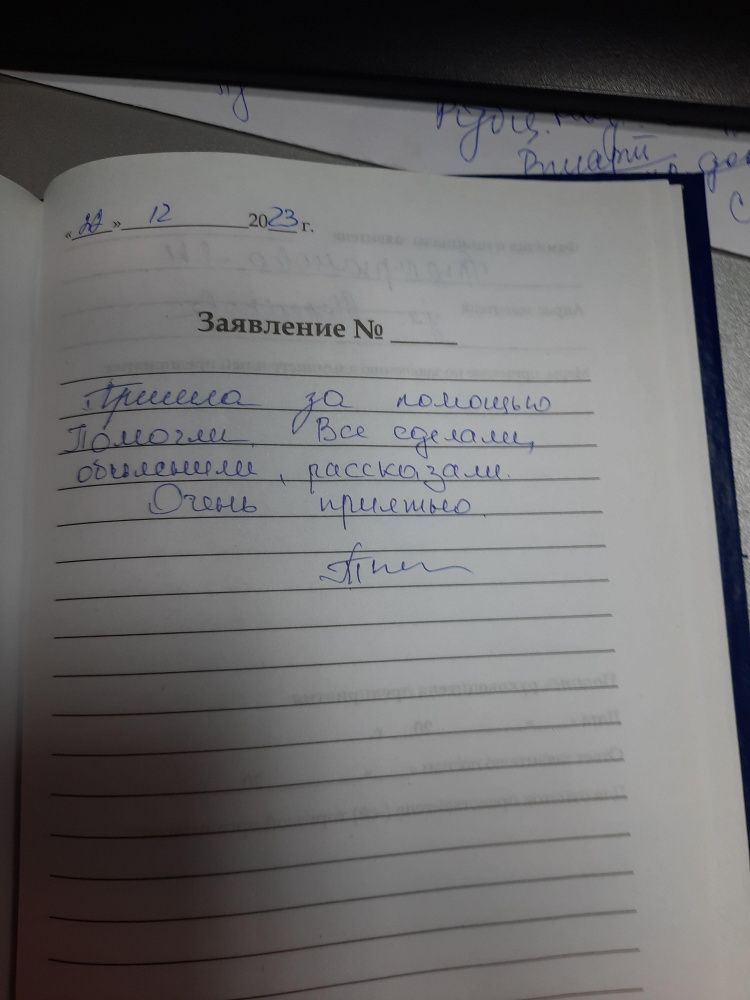 « 22 » 12 2023 г.
Заявление № ____
Пришла за помощью
Помогли. Все сделали,
объяснили, рассказали.
Очень приятно.